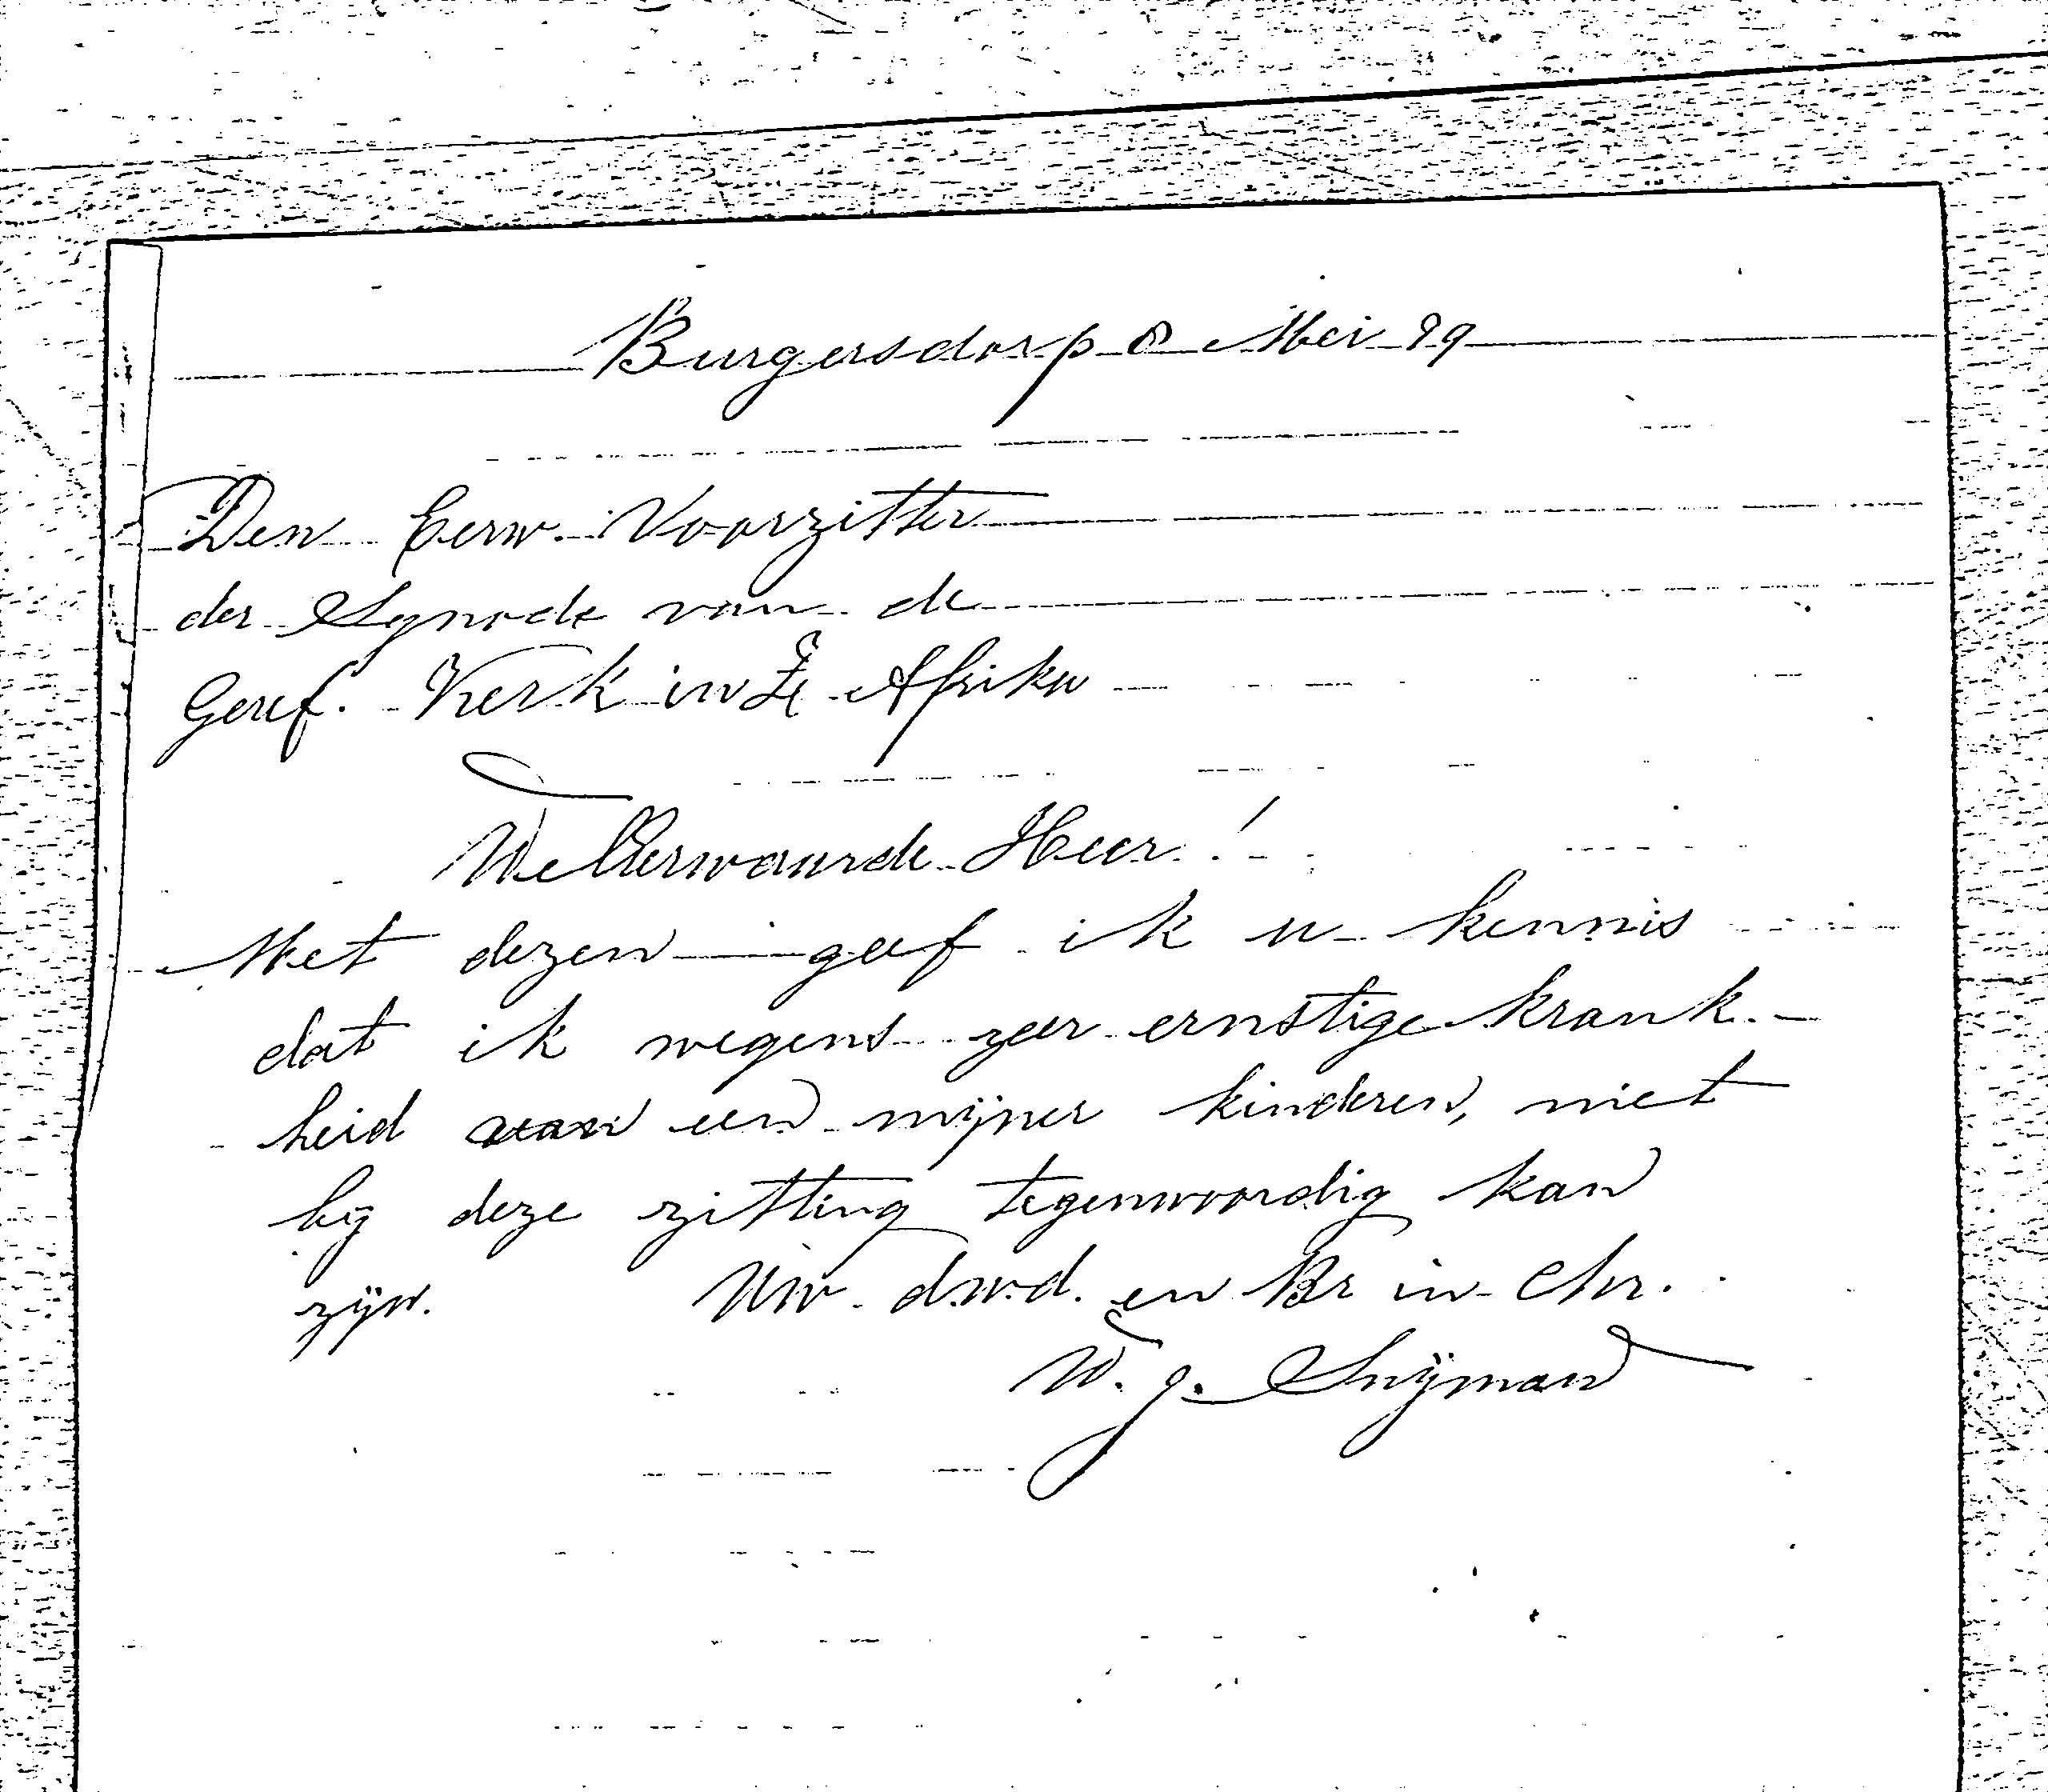 Burgersdorp 8 Mei 99
Den Eerw. Voorzitter
der Synode van de
Geref. Kerk in Z. Afrika
WelEerwaarde Heer!
Met dezen geef ik u kennis
dat ik wegens zeer ernstige krank-
heid van een mijner kinderen, niet
bij deze zitting tegenwoordig kan
zijn. Uw d.w.d. en Br in Chr.
W. J. Snÿman